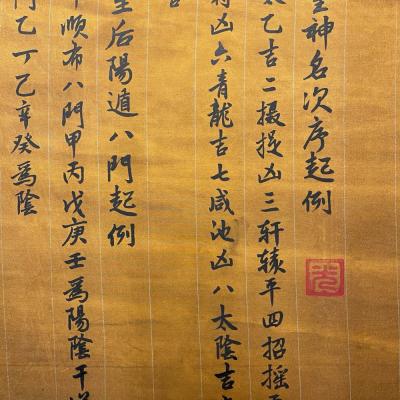 神名次序起例
乙吉二摄提凶三轩辕平四招摇
符凶六青龍吉七咸池凶八太陰吉
至后陽遁八門起例
顺布八門甲丙戊庚壬爲陽陰干
乙丁己辛癸爲陰